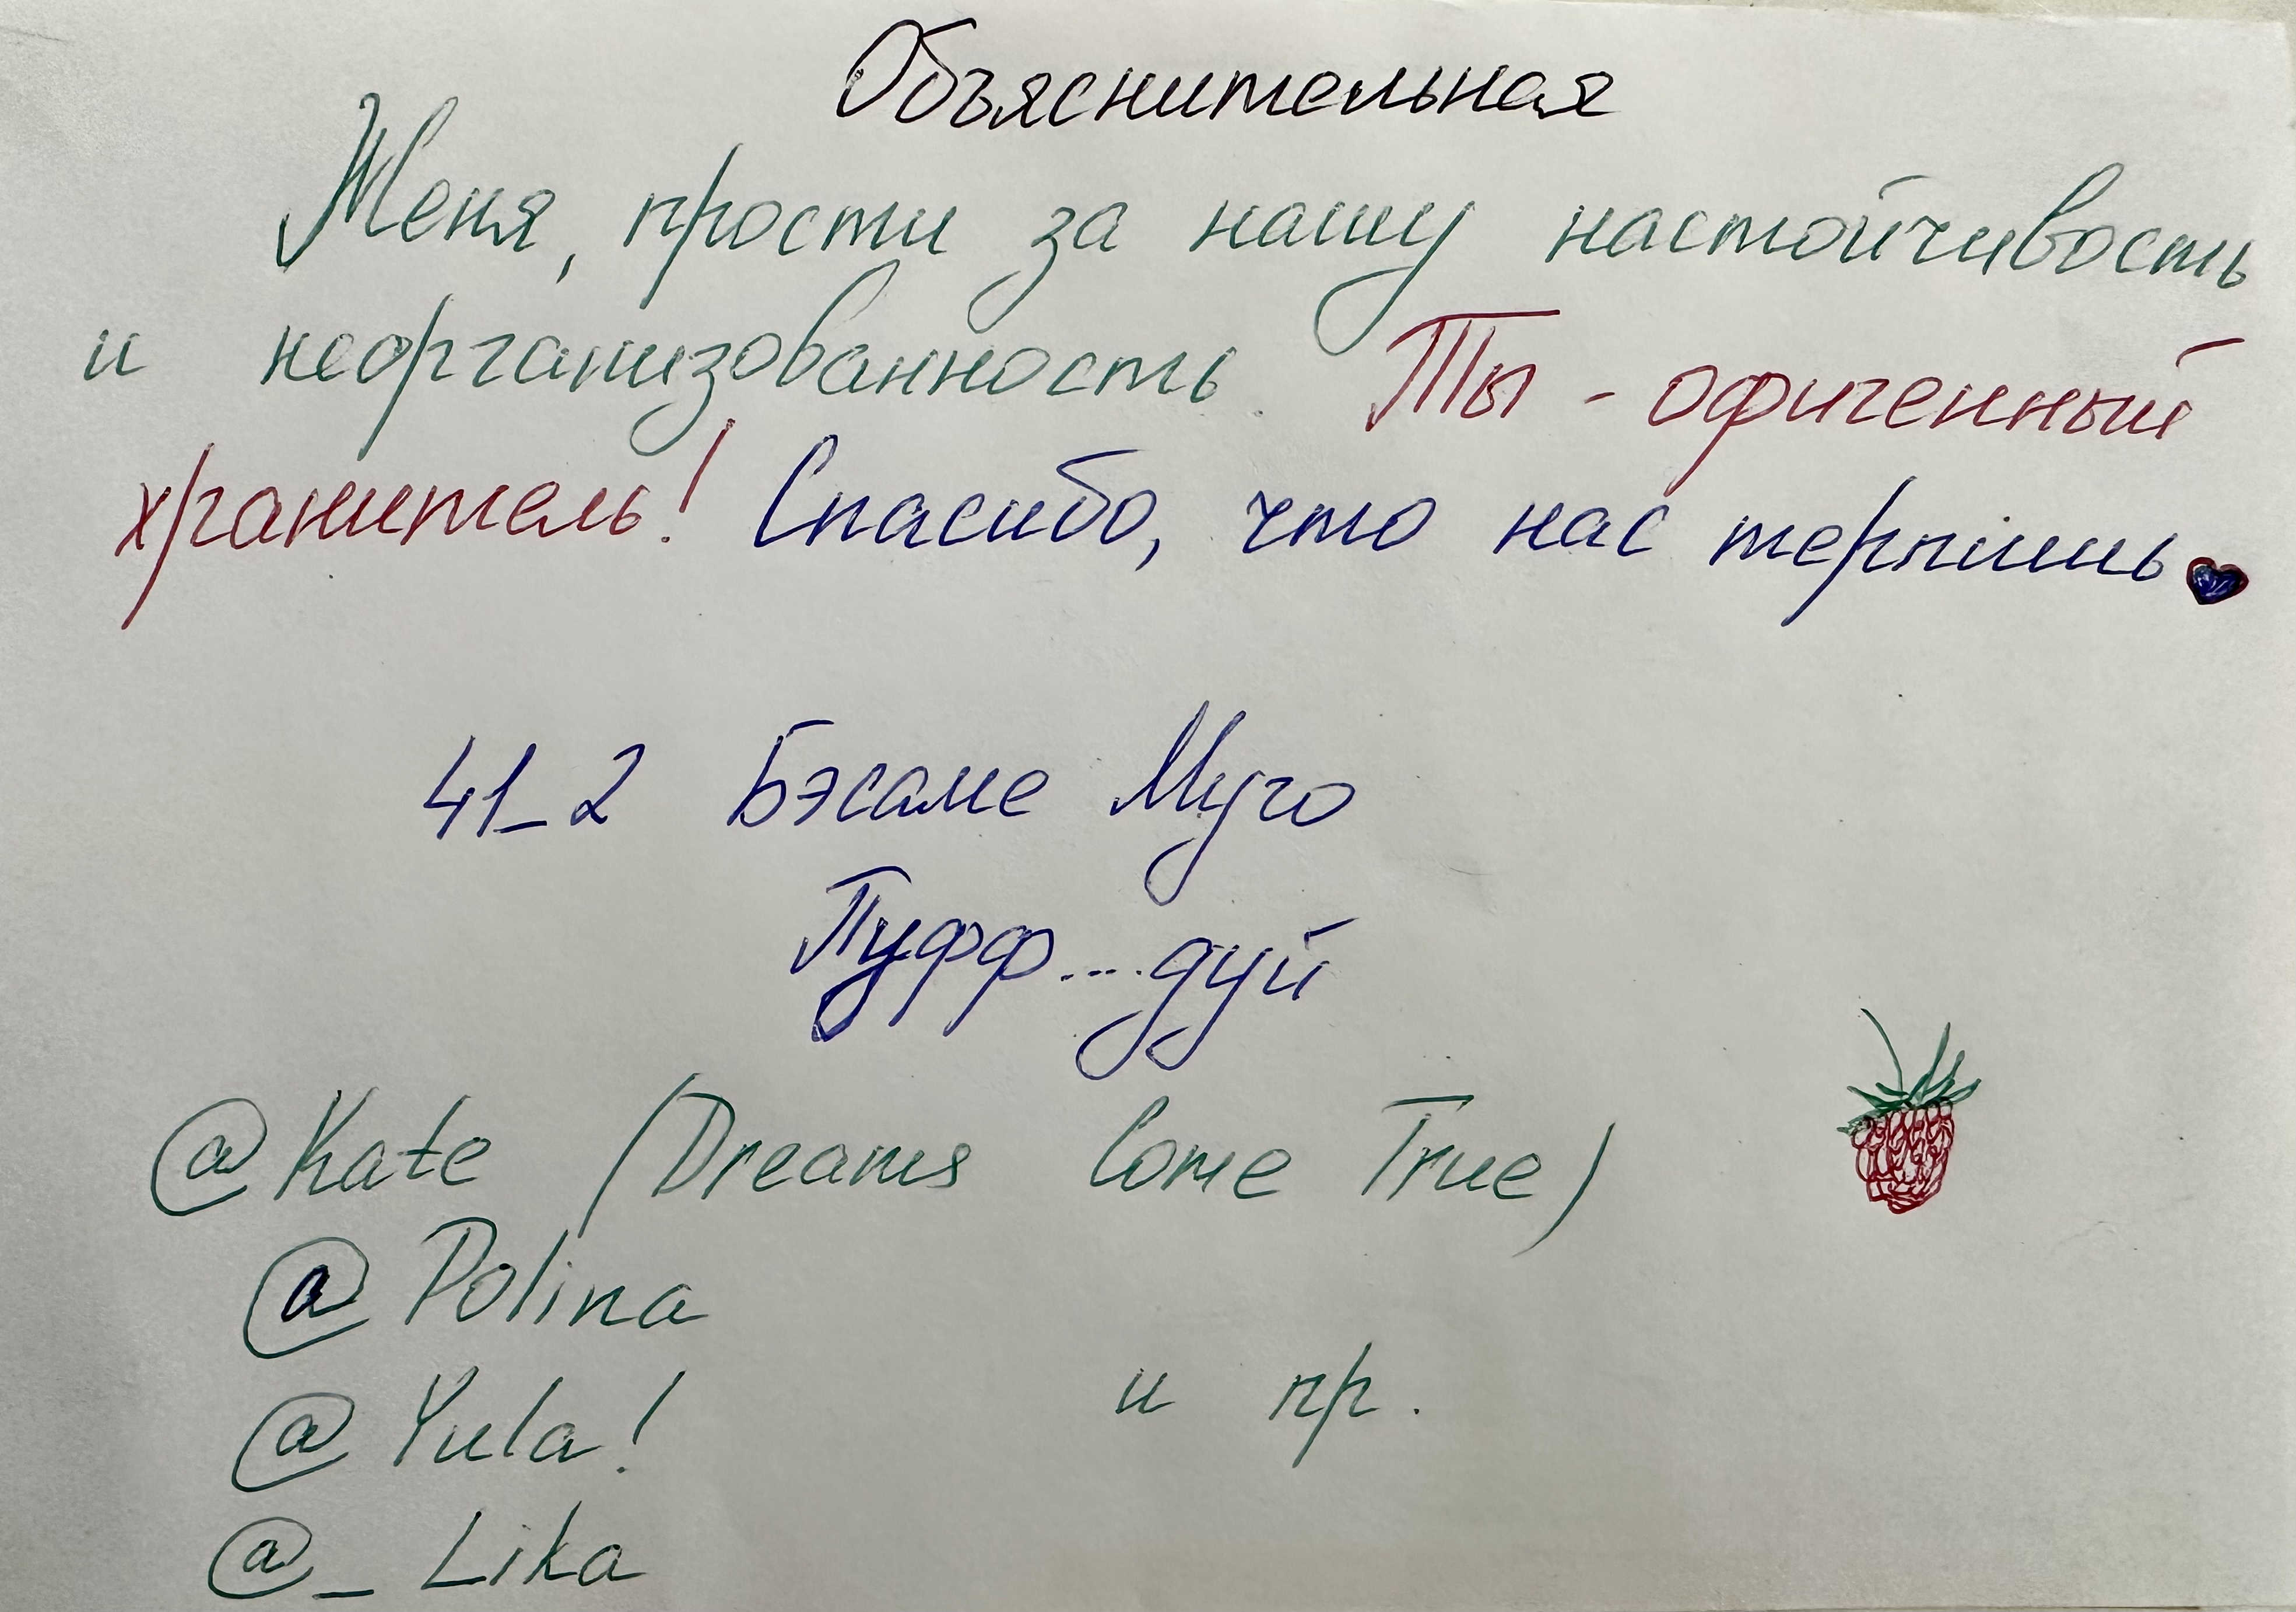 Объяснительная
Женя, прости за нашу настойчивость
и неорганизованность. Ты - офигенный
хранитель! Спасибо, что нас терпишь
41_2 Бэсаме Мучо
Пуфф....дуй
@Kate (Dreams Come True)
@Polina
@Yula! и пр.
@_Lika